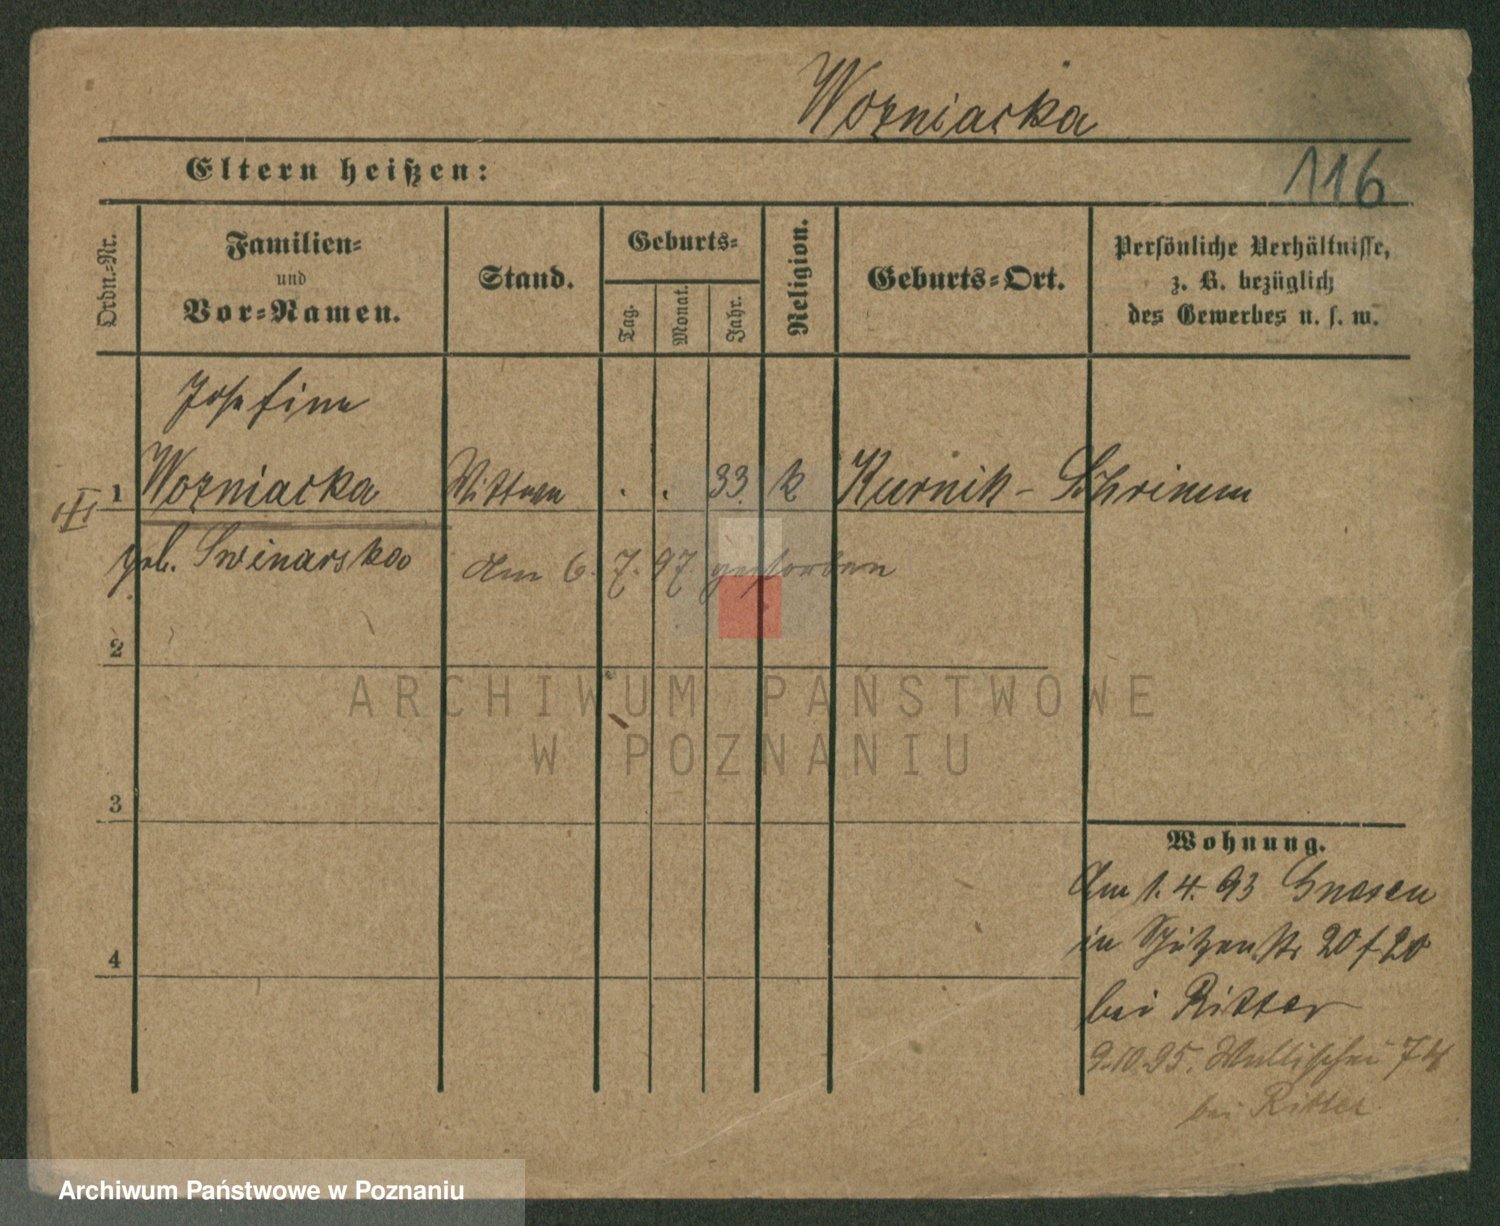 Wozniacka
Eltern heißen:
116
Ordn.-Nr.
Familien-
und
Vor-Namen.
Stand.
Geburts-
Tag.
Monat.
Jahr.
Religion.
Geburts-Ort.
Persönliche Verhältnisse,
z. B. bezüglich
des Gewerbes u. s. w.
Josefine
1 Wozniacka Wittwe . . 33 k Kurnik - Schrimm
III
geb. Swinarska
Am 6. 7. 97 gestorben
2
ARCHIWUM PAŃSTWOWE
W POZNANIU
3
Wohnung.
Am 1. 4. 93 Gnesen
in Schützenstr 20
4
bei Ritter
9.10.95. Wallischei 74
bei Ritter
Archiwum Państwowe w Poznaniu